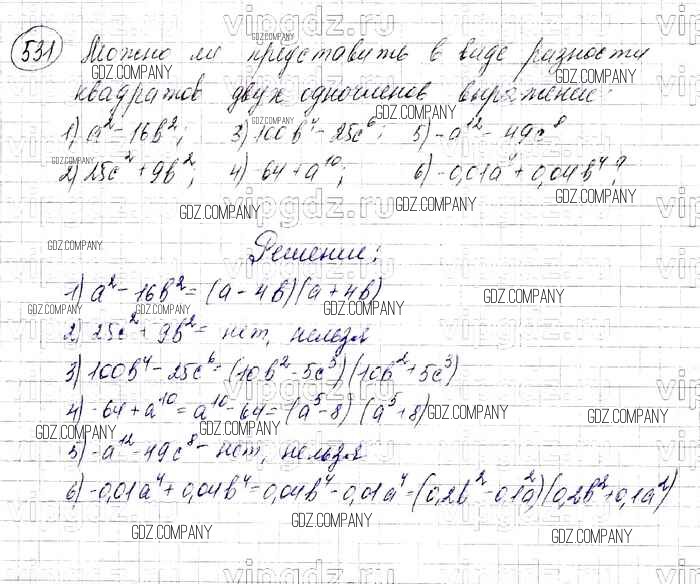 531 Можно ли представить в виде разности
квадратов двух одночленов выражение:
1) a² - 16b²; 3) 100b⁴ - 25c⁶; 5) -a¹² - 49c⁸
2) 25c² + 9b²; 4) -64 + a¹⁰; 6) -0,01a⁴ + 0,04b⁴?
Решение:
1) a² - 16b² = (a - 4b)(a + 4b)
2) 25c² + 9b² = нет, нельзя
3) 100b⁴ - 25c⁶ = (10b² - 5c³)(10b² + 5c³)
4) -64 + a¹⁰ = a¹⁰ - 64 = (a⁵ - 8)(a⁵ + 8)
5) -a¹² - 49c⁸ - нет, нельзя
6) -0,01a⁴ + 0,04b⁴ = 0,04b⁴ - 0,01a⁴ = (0,2b² - 0,1a²)(0,2b² + 0,1a²)
vipgdz.ru
GDZ.COMPANY